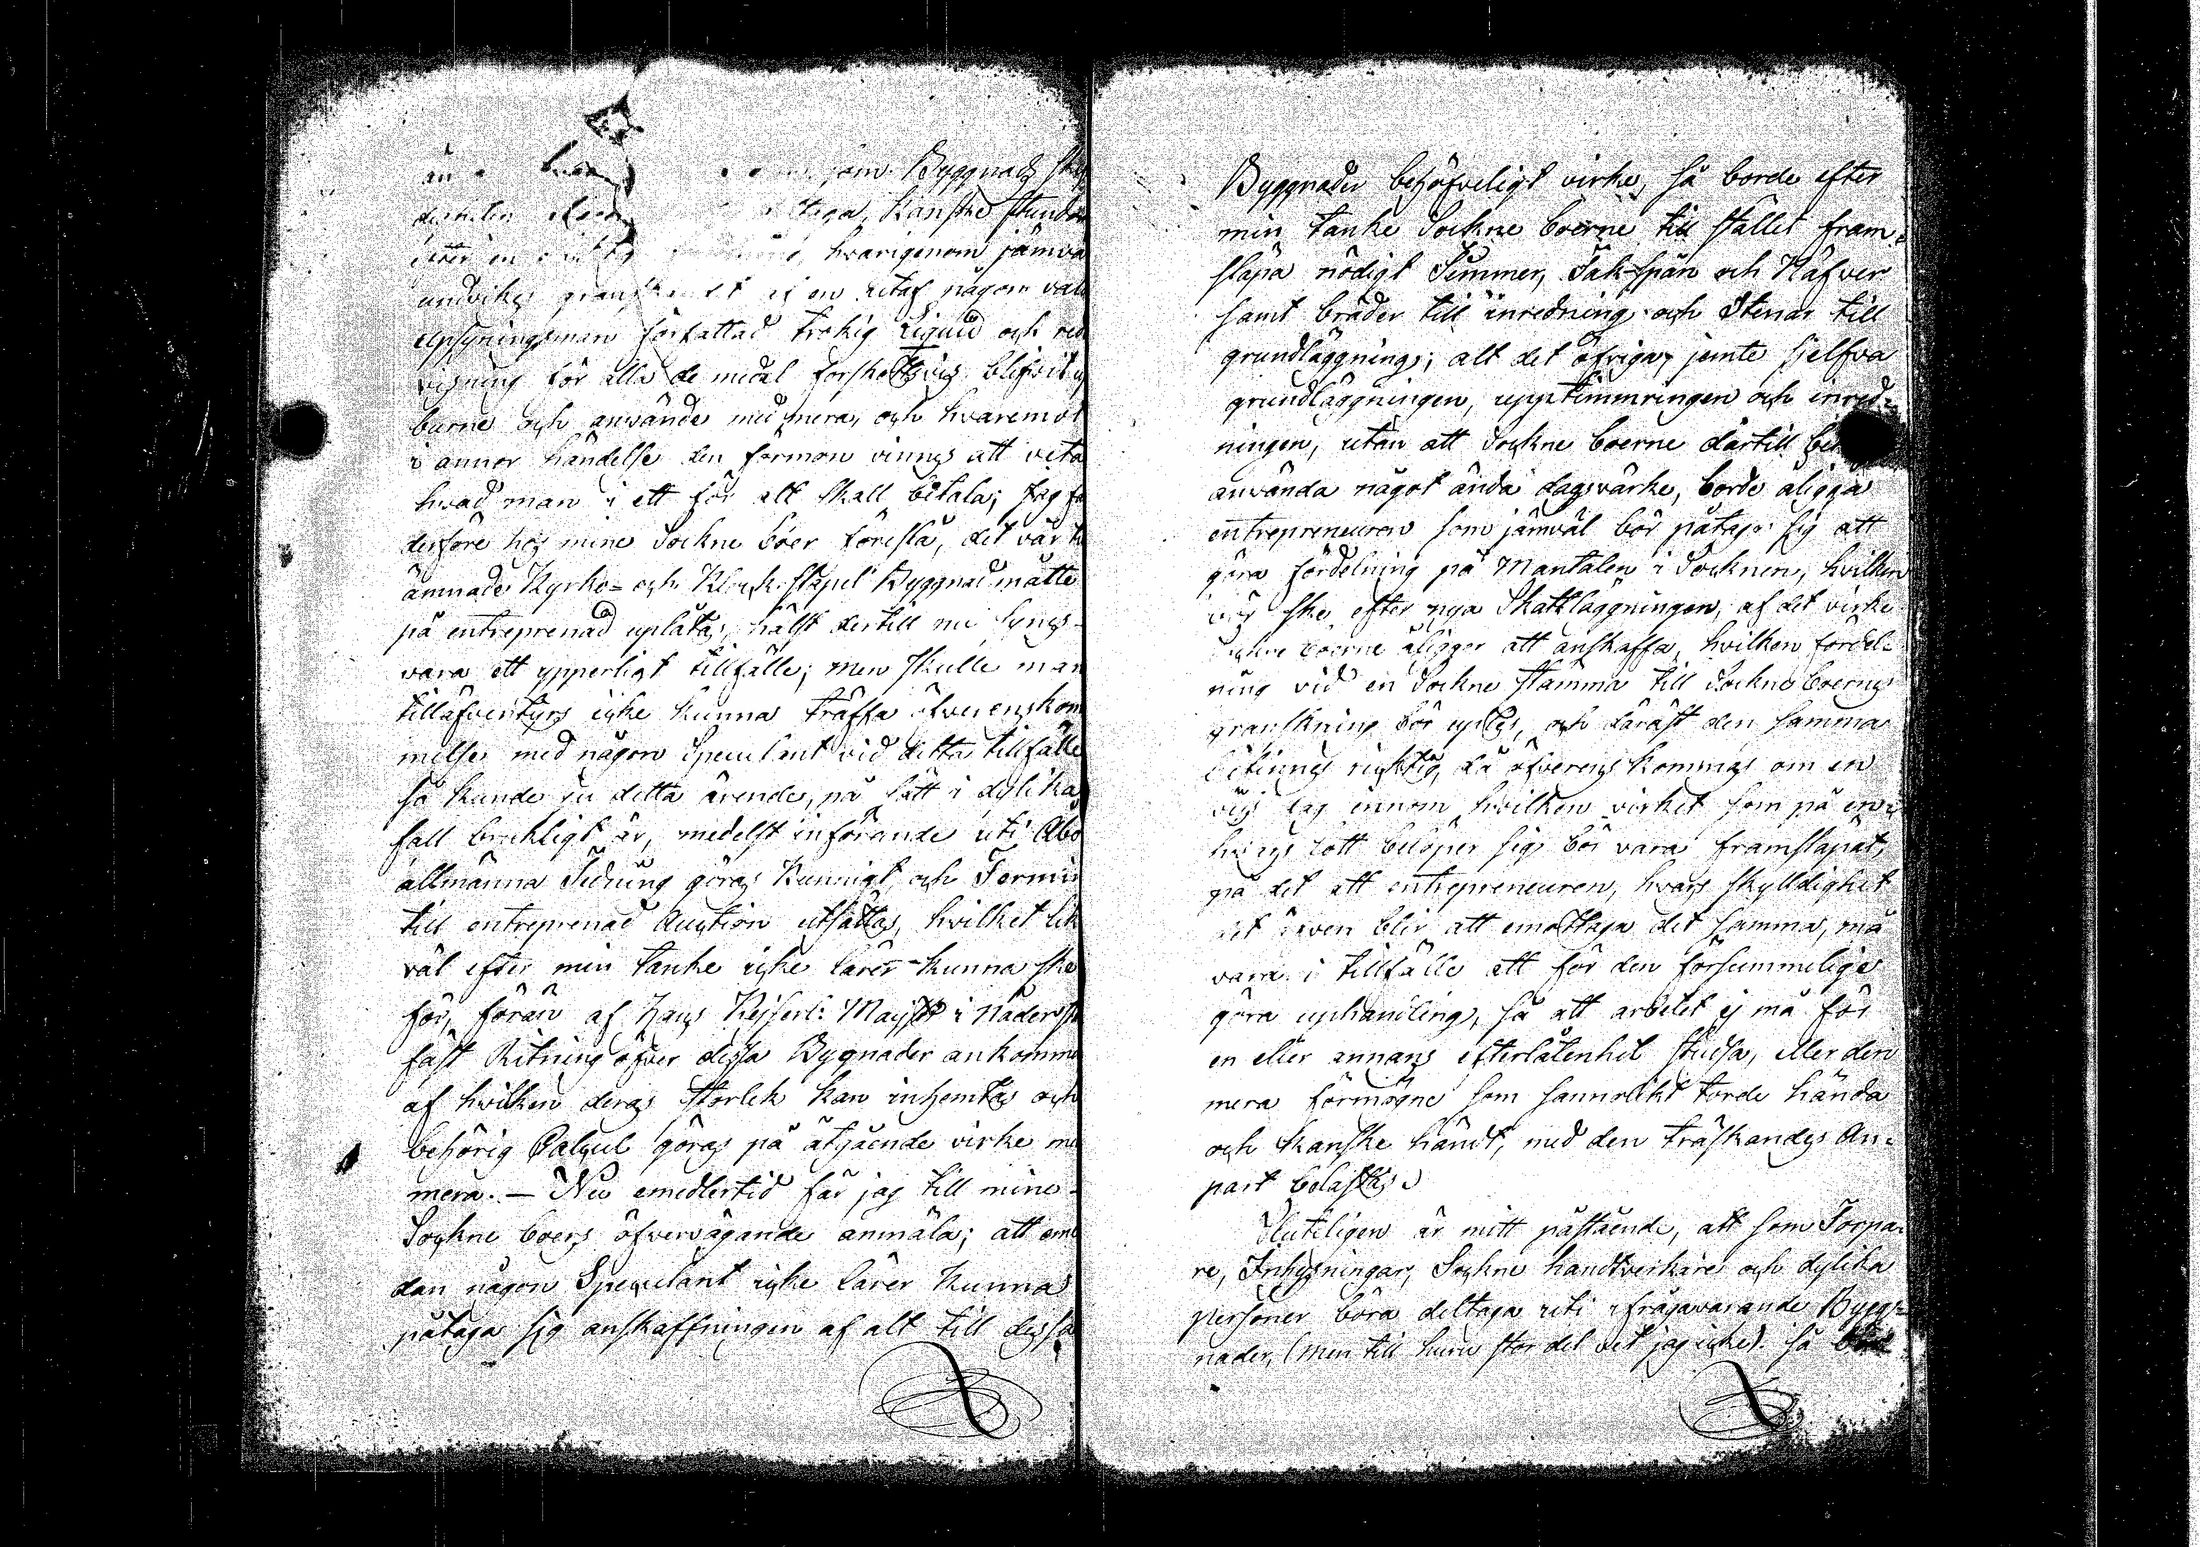 än som Byggnads
kanske stundom
hvarigenom jämväl
undvikes granskandet af en utaf någon vald
upsyningsman författad trokig Liquid och red
visning för alla de medel förskottsvis blifvit up
burne och använde med mera, och hvaremot
i annor händelse den förmon vinnes att veta
hvad man i ett för alt skall betala; Jag får
derföre hos mine Sockne boer föreslå, det vår til
ämnade Kyrko- och Klock stapel Byggnad måtte
på entreprenad uplåtas, hälst dertill nu synes
vara ett ypperligt tillfälle; men skulle man
tilläfventyrs icke kunna träffa öfverenskom
melse med någon Speculant vid detta tillfälle
så kunde ju detta ärende, på sätt i dylika
fall brukligt är, medelst införande uti Åbo
allmänna Tidning göras kunnigt och Termin
till entreprenad Auction utsättas, hvilket lik
väl efter min tanke icke lärer kunna ske
för, förän af Hans Kejserl: Majst i Nåder st
fäst Ritning öfver dessa Bygnader ankommit
af hvilken deras storlek kan inhemtas och
behörig Calcul göras på åtgående virke med
mera. — Nu emedlertid får jag till mine
Sockne boers öfvervägande anmäla; att eme
dan någon Speculant icke lärer kunna
påtaga sig anskaffningen af alt till dessa
Byggnader behöfveligt virke, så borde efter
min tanke Sockne boerne till stället fram-
släpa nödigt Timmer, Tak-spån och Näfver
samt bräder till inredning och Stenar till
grundläggning; alt det öfriga, jemte sjelfva
grundläggningen, upptimmringen och inred-
ningen, utan att Sockne boerne därtill
använda något ända dagsvärke, borde åligga
entrepreneuren som jämväl bör påtaga sig att
göra fördelning på Mantalen i Socknen, hvilken
bör ske efter nya Skattläggningen, af det virke
Sockne boerne åligger att anskaffa, hvilken fördel-
ning vid en Sockne stämma till Sockne boernes
granskning bör uptes, och däräst den samma
befinnes richtig, då öfverenskommes om en
viss dag innom hvilken virket som på en-
hvars lott belöper sig bör vara framsläpat,
på det att entrepreneuren, hvars skylldighet
det även blir att emottaga det samma, må
vara i tillfälle att för den försummelige
göra uphandling, så att arbetet ej må för
en eller annans efterlåtenhet studsa, eller den
mera förmögne som sannolikt torde hända
och kanske händt, med den träskandes An-
part belastas.
Sluteligen är mitt påstående, att som Torpa-
re, Inhysningar, Sockne handtverkare och dylika
personer böra deltaga uti ifrågavarande Bygg-
nader, (men till huru stor del vet jag icke) så